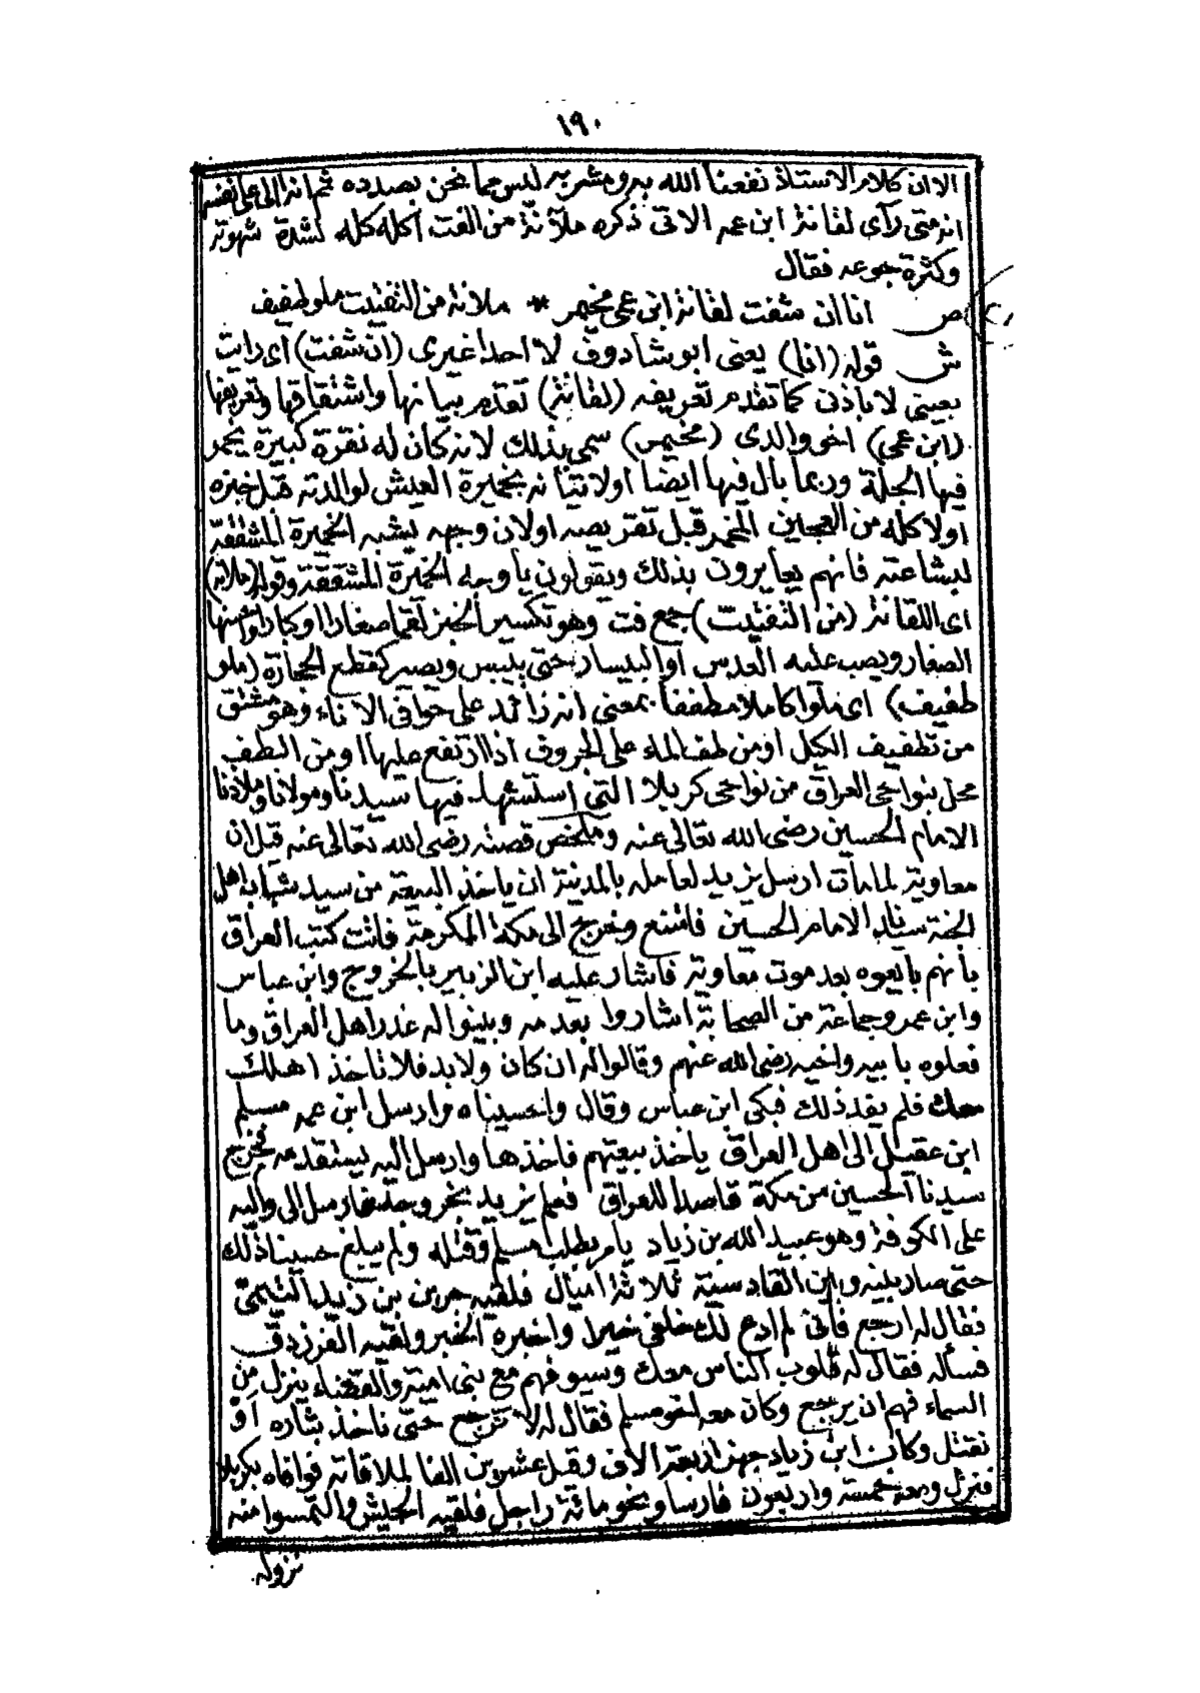 ١٩٠
الا ان كلام الاستاذ نفعنا الله به ومشربه ليس مما نحن بصدده ثم انه الى على نفسه
انه متى رآى لقانة ابن عمه الاتى ذكره ملآنة من الفت اكله كله لشدة شهوته
وكثرة جوعه فقال
ص انا ان شفت لقانة ابن عمى مخيمر * ملانة من التفتيت ملو طفيف
ش قوله (انا) يعنى ابو شادوف لا احدا غيرى (ان شفت) اى رايت
بعينى لا باذنى كما تقدم تعريفه (لقانة) تقدم بيانها واشتقاقها وتعريفها
(ابن عمى) اخو والدى (مخيمر) سمى بذلك لانه كان له نقرة كبيرة يخمر
فيها الجلة وربما بال فيها ايضا او لاتيانه بخميرة العيش لوالدته قبل خبزه
او لاكله من العجين المخمر قبل تقريصه او لان وجهه يشبه الخميرة المشققة
لبشاعته فانهم يعايرون بذلك ويقولون يا وجه الخميرة المشققة وقوله (ملانه)
اى اللقانة (من التفتيت) جمع فت وهو تكسير الخبز لقما صغارا او كبارا واحسنها
الصغار ويصب عليه العدس او البيسار حتى ييبس ويصير كقطع الحجارة (ملو
طفيف) اى ملوا كاملا مطففا بمعنى انه زائد على حوافى الاناء وهو مشتق
من تطفيف الكيل او من طف الماء على الجروف اذا ارتفع عليها او من الطف
محل بنواحى العراق من نواحى كربلا التى استشهد فيها سيدنا ومولانا وملاذنا
الامام الحسين رضى الله تعالى عنه وملخص قصته رضى الله تعالى عنه قبل ان
معاوية لما مات ارسل يزيد لعامله بالمدينة ان ياخذ البيعة من سيد شباب اهل
الجنة سيدنا الامام الحسين فامتنع وخرج الى مكة المكرمة فاتت كتب العراق
بانهم بايعوه بعد موت معاوية فاشار عليه ابن الزبير بالخروج وابن عباس
وابن عمر وجماعة من الصحابة اشاروا بعدمه وبينوا له غدر اهل العراق وما
فعلوه بابيه واخيه رضى الله عنهم وقالوا له ان كان ولا بد فلا تاخذ اهلك
معك فلم يفد ذلك فبكى ابن عباس وقال واحسيناه وارسل ابن عمه مسلم
ابن عقيل الى اهل العراق ياخذ بيعتهم فاخذها وارسل اليه يستقدمه فخرج
سيدنا الحسين من مكة قاصدا للعراق فعلم يزيد بخروجه فارسل الى واليه
على الكوفة وهو عبيد الله بن زياد يامر بطلب مسلم وقتله ولم يبلغ حسينا ذلك
حتى صار بينه وبين القادسية ثلاثة اميال فلقيه حر بن يزيد التيمى
فقال له ارجع فانى لم ادع لك خلفى خيرا واخبره الخبر ولقيه الفرزدق
فسأله فقال له قلوب الناس معك وسيوفهم مع بنى امية والقضاء ينزل من
السماء فهم ان يرجع وكان معه اخو مسلم فقال له لا ترجع حتى ناخذ بثاره او
نقتل وكان ابن زياد جهز اربعة الاف وقيل عشرين الفا لملاقاته فوافاه بكربلا
فنزل ومعه خمسة واربعون فارسا ونحو مائة راجل فلقيه الجيش والتمسوا منه
نزوله